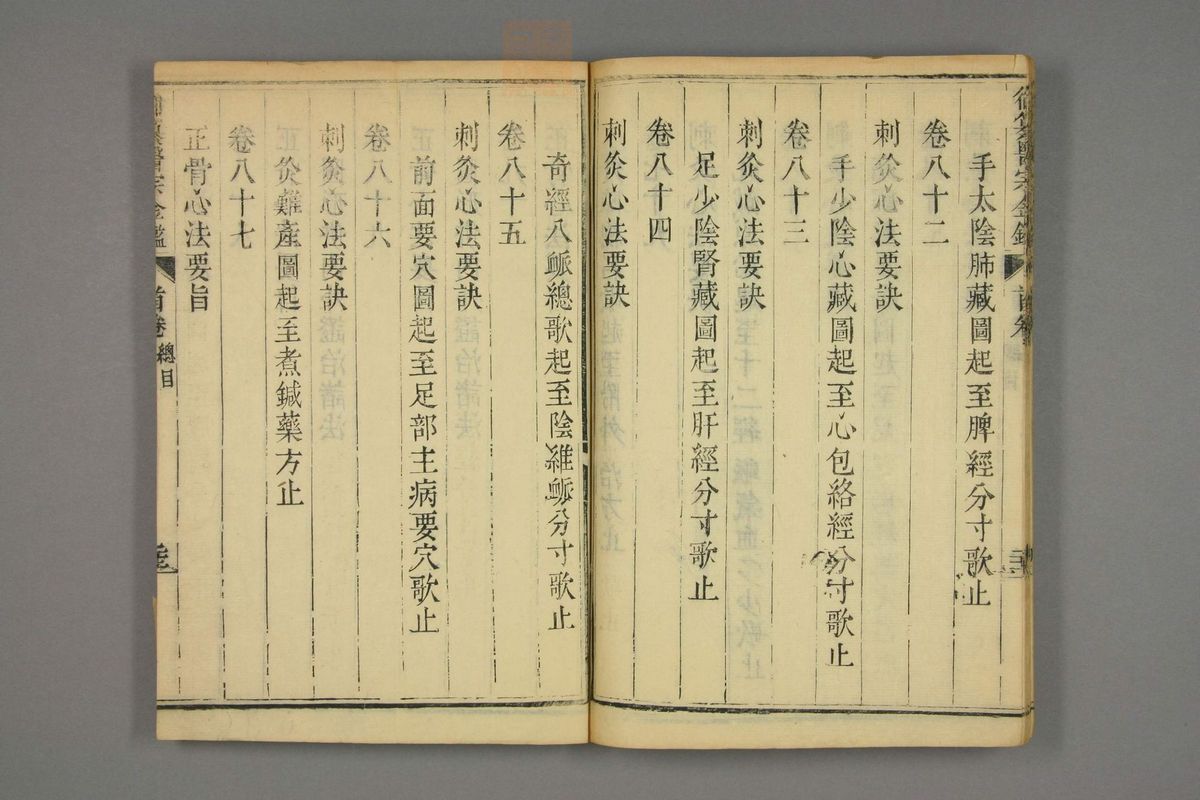 御纂醫宗金鑑
首卷
手太陰肺藏圖起至脾經分寸歌止
卷八十二
刺灸心法要訣
手少陰心藏圖起至心包絡經分寸歌止
卷八十三
刺灸心法要訣
足少陰腎藏圖起至肝經分寸歌止
卷八十四
刺灸心法要訣
奇經八脈總歌起至陰維脈分寸歌止
卷八十五
刺灸心法要訣
前面要穴圖起至足部主病要穴歌止
卷八十六
刺灸心法要訣
灸難產圖起至煮鍼藥方止
卷八十七
正骨心法要旨
御纂醫宗金鑑
首卷 總目